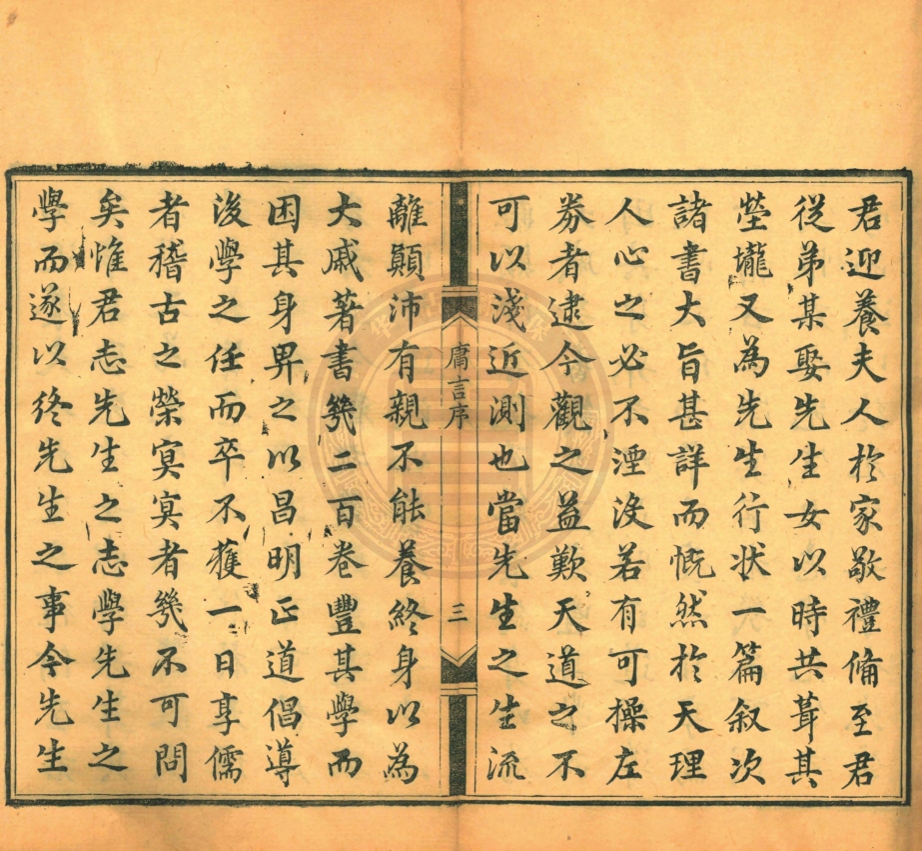 君迎養夫人於家敬禮備至君
從弟某娶先生女以時共葺其
塋壠又為先生行狀一篇叙次
諸書大旨甚詳而慨然於天理
人心之必不湮没若有可操左
券者逮今觀之益歎天道之不
可以淺近測也當先生之生流
庸言序
三
離顛沛有親不能養終身以為
大戚著書幾二百卷豐其學而
困其身畀之以昌明正道倡導
後學之任而卒不獲一日享儒
者稽古之榮冥冥者幾不可問
矣惟君志先生之志學先生之
學而遂以終先生之事今先生